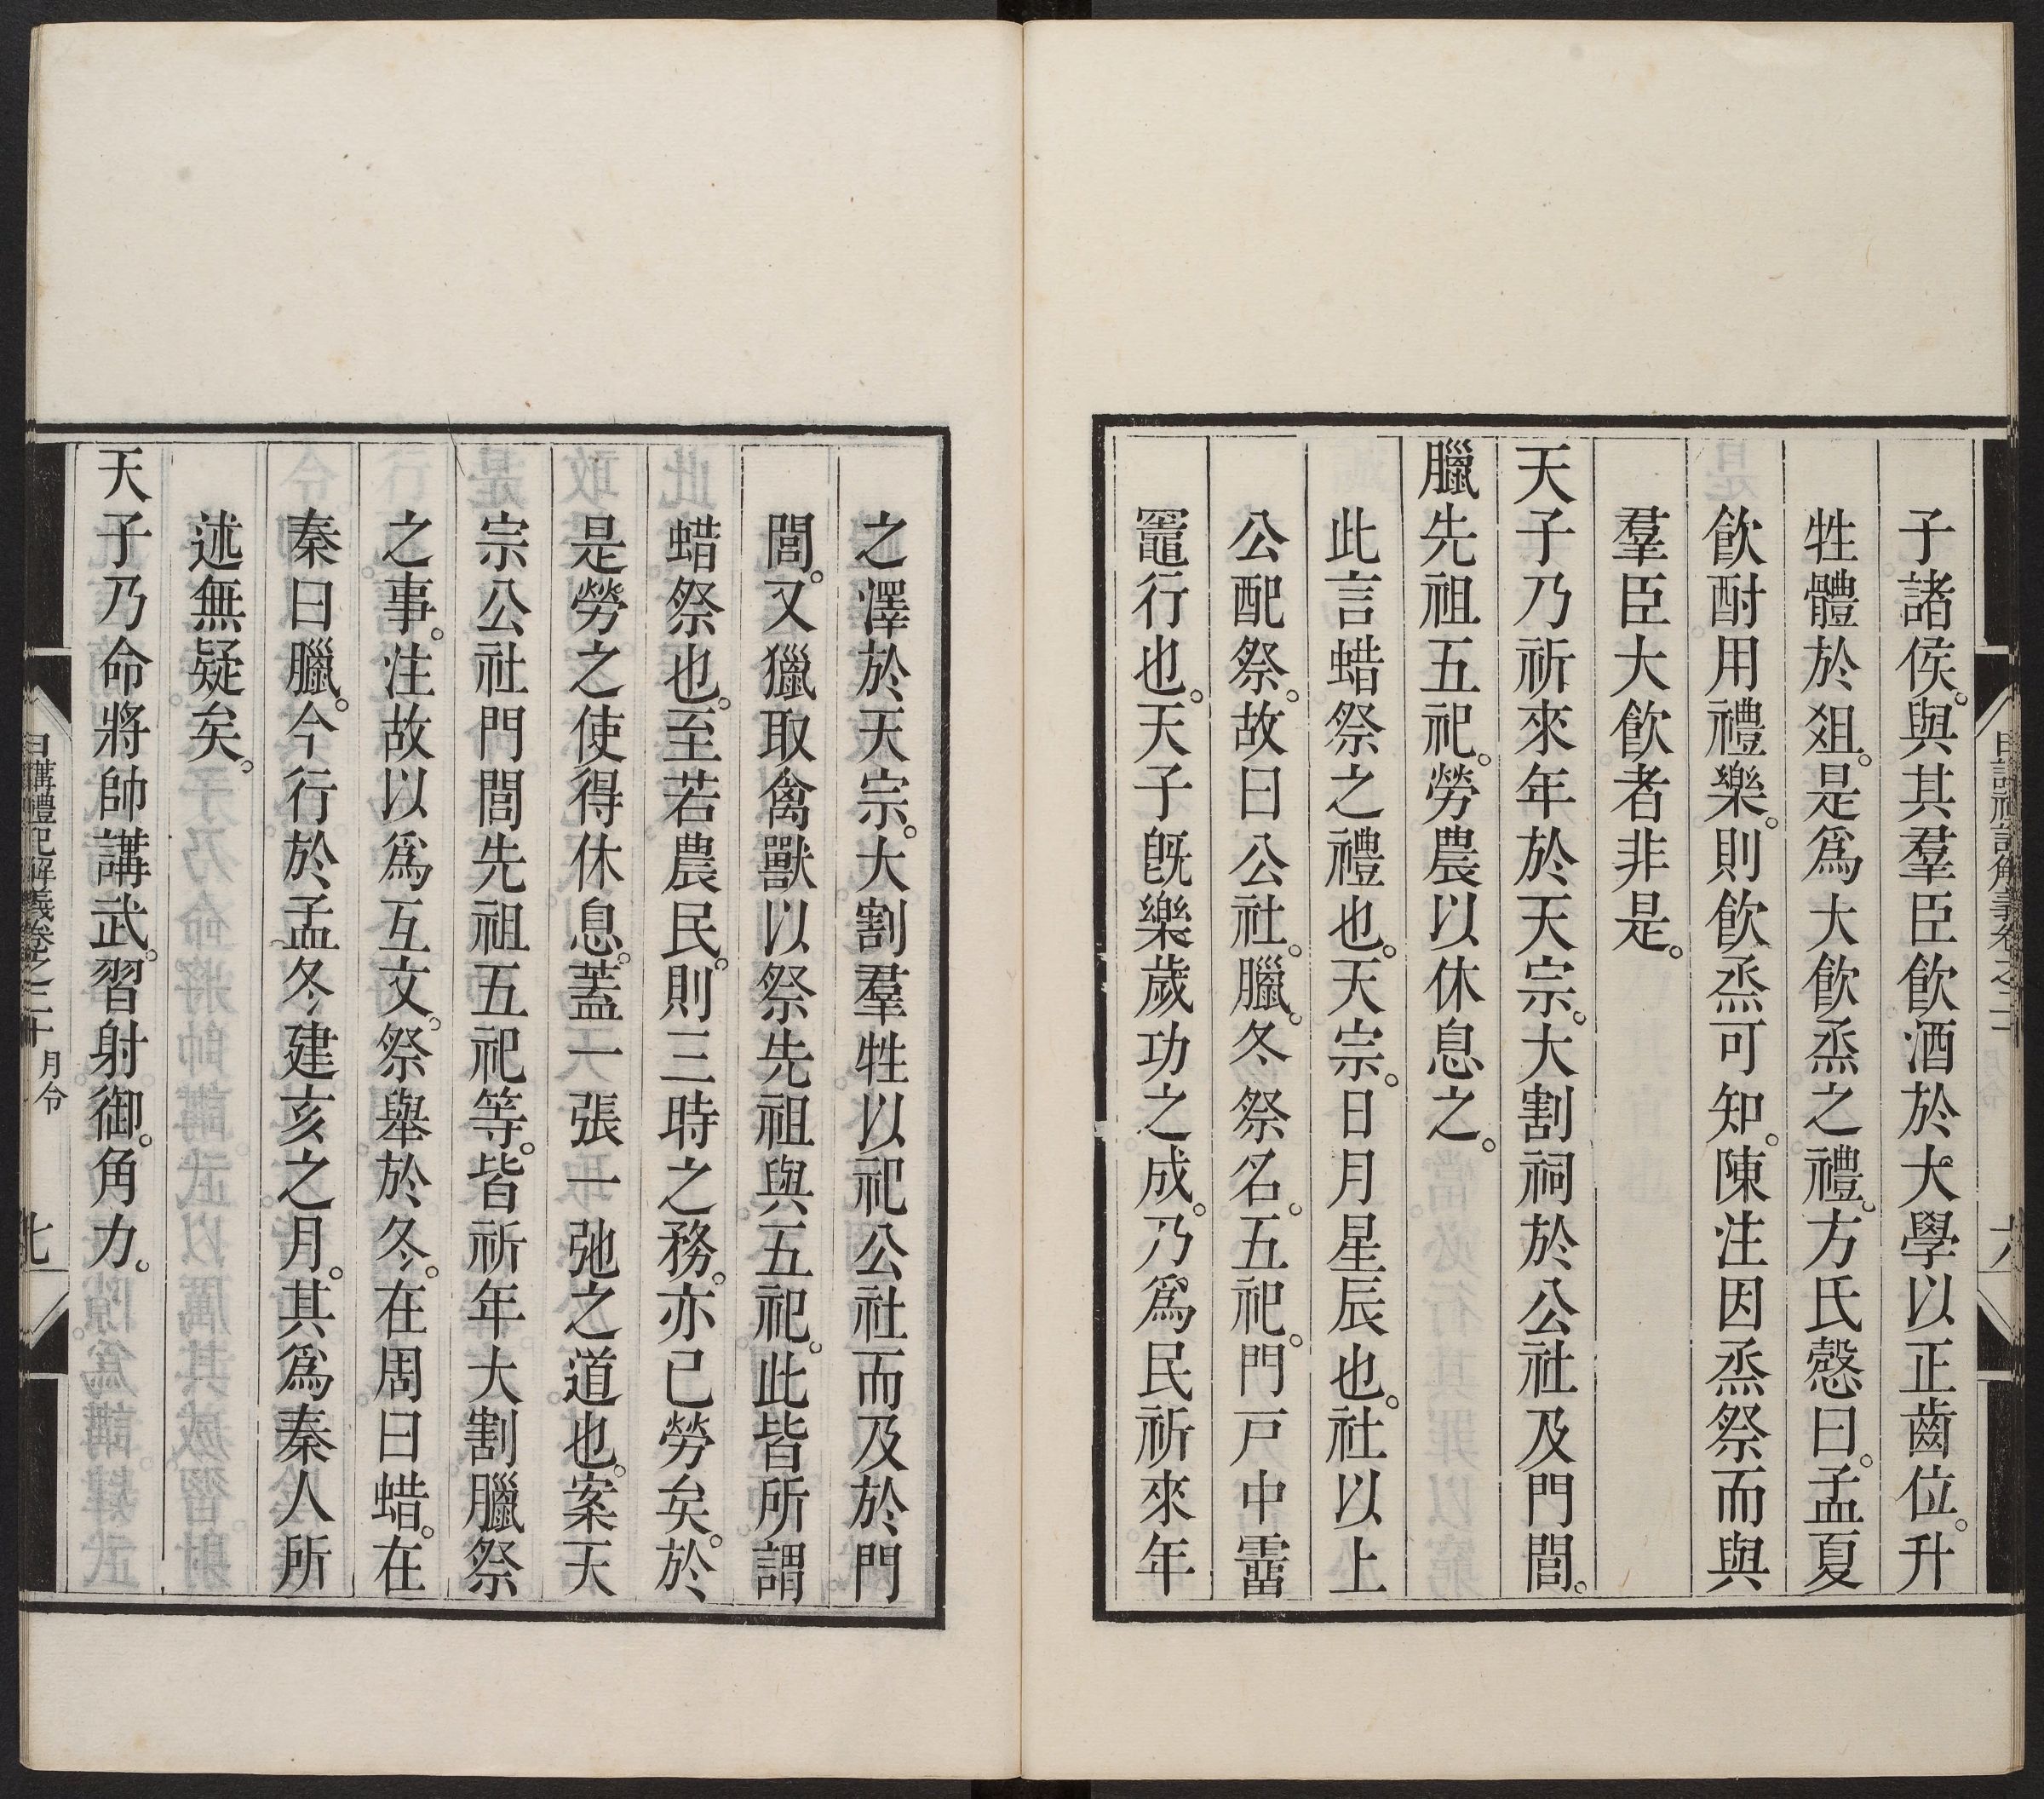 子諸侯。與其羣臣飲酒於大學以正齒位。升
牲體於俎。是爲大飲烝之禮。方氏慤曰。孟夏
飲酎用禮樂。則飲烝可知。陳注因烝祭而與
羣臣大飲者非是。
天子乃祈來年於天宗。大割祠於公社及門閭。
臘先祖五祀。勞農以休息之。
此言蜡祭之禮也。天宗。日月星辰也。社以上
公配祭。故曰公社。臘。冬祭名。五祀。門戸中霤
竈行也。天子旣樂歲功之成。乃爲民祈來年
之澤於天宗。大割羣牲以祀公社而及於門
閭。又獵取禽獸以祭先祖與五祀。此皆所謂
蜡祭也。至若農民。則三時之務。亦已勞矣。於
是勞之使得休息。蓋一張一弛之道也。案天
宗公社門閭先祖五祀等。皆祈年大割臘祭
之事。注故以爲互文。祭舉於冬。在周曰蜡。在
秦曰臘。今行於孟冬建亥之月。其爲秦人所
述無疑矣。
天子乃命將帥講武。習射御。角力。
日講禮記解義卷之二十 月令 七